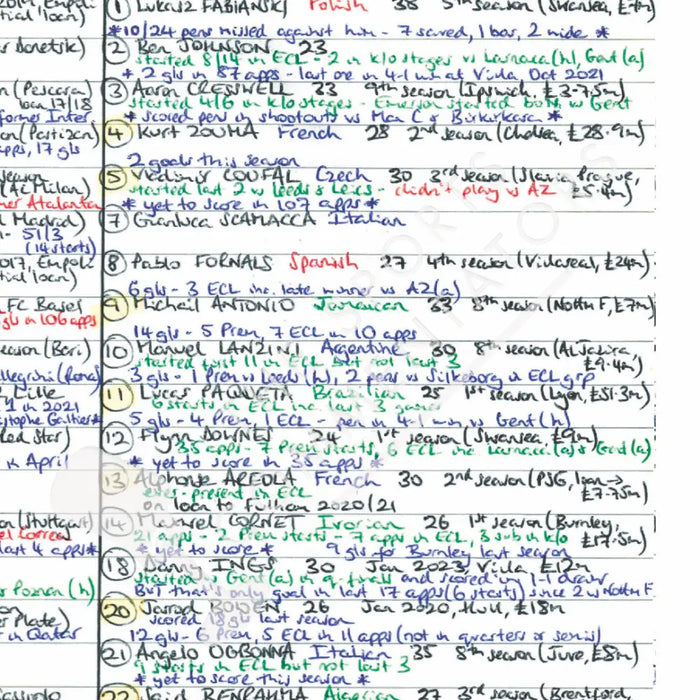 1 Lukasz FABIANSKI Polish 38 5th season (Swansea, £7m)
*10/24 pens missed against him - 7 saved, 1 bar, 2 wide *
2 Ben JOHNSON 23
started 8/14 in ECL - 2 in k/o stages vs Larnaca (h), Gent (a)
* 2 gls in 87 apps - last one in 4-1 win at Villa, Oct 2021
3 Aaron CRESSWELL 33 9th season (Ipswich, £3.75m)
started 4/6 in k/o stages - Emerson started both vs Gent
* scored pen in shootouts vs Man C & Birkirkara *
4 Kurt ZOUMA French 28 2nd season (Chelsea, £28.9m)
2 goals this season
5 Vladimir COUFAL Czech 30 3rd season (Slavia Prague, £5.4m)
started last 2 vs Leeds & Leics - didn't play vs AZ
* yet to score in 107 apps *
7 Gianluca SCAMACCA Italian
8 Pablo FORNALS Spanish 27 4th season (Villareal, £24m)
6 gls - 3 ECL inc. late winner vs AZ (a)
9 Michail ANTONIO Jamaican 33 8th season (Nottm F, £7m)
14 gls - 5 Prem, 7 ECL in 10 apps
10 Manuel LANZINI Argentine 30 8th season (Al Jazira, £9.4m)
started first 11 in ECL but not last 3
3 gls - 1 Prem vs Leeds (h), 2 pens vs Silkeborg in ECL grp
11 Lucas PAQUETA Brazilian 25 1st season (Lyon, £51.3m)
6 starts in ECL inc last 3 games
5 gls - 4 Prem, 1 ECL - pen in 4-1 win vs Gent (h)
12 Flynn DOWNES 24 1st season (Swansea, £9m)
35 apps - 7 Prem starts, 6 ECL inc Larnaca (a) & Gent (a)
* yet to score in 35 apps *
13 Alphonse AREOLA French 30 2nd season (PSG, loan → £7.75m)
ever-present in ECL
on loan to Fulham 2020/21
14 Maxwel CORNET Ivorian 26 1st season (Burnley, £17.5m)
21 apps - 2 Prem starts - 7 apps in ECL, 3 sub in k/o
* yet to score * 9 gls for Burnley last season
18 Danny INGS 30 Jan 2023, Villa, £12m
started vs Gent (a) in q-finals and scored in 1-1 draw
BUT that's only goal in last 17 apps (6 starts) since 2 vs Nottm F
20 Jarrod BOWEN 26 Jan 2020, Hull, £18m
scored 18 gls last season
12 gls - 6 Prem, 5 ECL in 11 apps (not in quarters or semis)
21 Angelo OGBONNA Italian 35 8th season (Juve, £8m)
9 starts in ECL but not last 3
* yet to score this season *
22 Said BENRAHMA Algerian 27 3rd season (Brentford,